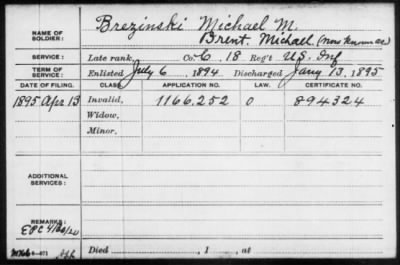 NAME OF SOLDIER: Brezinski Michael M.
Brent, Michael (now known as)
SERVICE: Late rank, Co. C, 18 Reg't U.S. Inf
TERM OF SERVICE: Enlisted July 6, 1894 Discharged Jany 13, 1895
DATE OF FILING. CLASS. APPLICATION NO. LAW. CERTIFICATE NO.
1895 Apr 13 Invalid, 1166,252 0 894324
Widow,
Minor,
ADDITIONAL SERVICES:
REMARKS:
Died , 1 , at